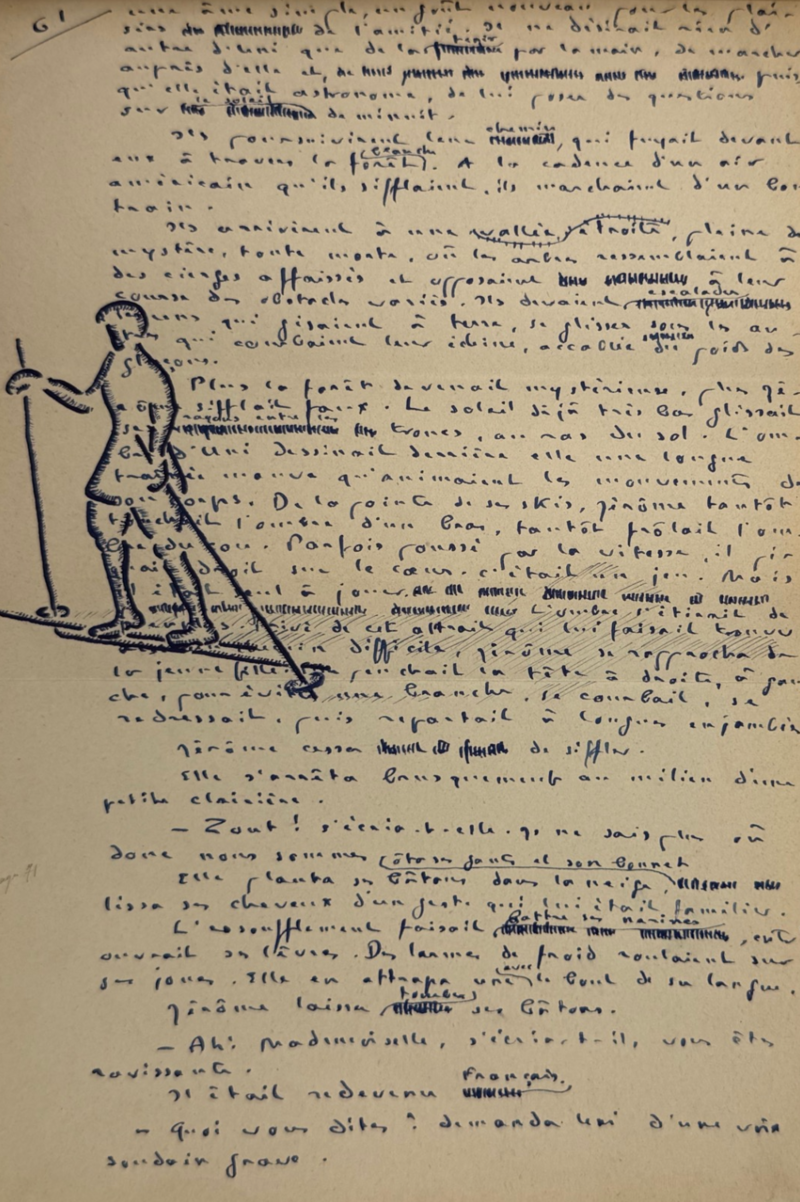 61
une âme simple, un goût nouveau pour les plai-
sirs de l'amitié. Il ne désirait rien d'
autre d'Uni que de la tenir par la main, de marcher
auprès d'elle et, puis
qu'elle était astronome, de lui poser des questions
sur le soleil de minuit.
Ils poursuivirent leur chemin, qui fuyait devant
eux à travers la forêt blanche. A la cadence d'un air
américain qu'ils sifflaient, ils marchaient d'un bon
train.
Ils arrivèrent à une vallée étroite, pleine de
mystère, toute morte, où les arbres ressemblaient à
des cierges affaissés et opposaient à leur
course des obstacles variés. Ils devaient escalader
qui gisaient à terre, se glisser sous les au-
tres qui courbaient leur échine, accablée du poids des
glaçons.
Plus la forêt devenait mystérieuse, plus Jé-
rôme sifflait faux. Le soleil déjà très bas glissait
ses rayons entre les troncs, au ras du sol. L'om-
bre d'Uni dessinait derrière elle une longue
traînée mauve qu'animaient les mouvements de
son corps. De la pointe de ses skis, Jérôme tantôt
touchait l'ombre d'un bras, tantôt frôlait l'om-
bre du cou. Parfois poussé par la vitesse, il pi-
quait droit sur le cœur. C'était un jeu. Mais
il était seul à jouer.
L'ombre s'étirait de
Privé de cet attrait qui lui faisait trouver
difficile, Jérôme se rapprocha de
la jeune fille. penchait la tête à droite, à gau-
che, pour éviter une branche, se courbait, se
redressait, puis repartait à longues enjambées
Jérôme cessa de siffler.
Elle s'arrêta brusquement au milieu d'une
petite clairière.
– Zout ! s'écria-t-elle. Je ne sais plus où
donc nous sommes
ôta ses gants et son bonnet
Elle planta ses bâtons dans la neige,
lissa ses cheveux d'un geste qui lui était familier.
L'essoufflement faisait battre ses narines, ent'
ouvrait ses lèvres. Des larmes de froid roulaient sur
ses joues. Elle en attrapa une avec le bout de sa langue.
Jérôme laissa tomber ses bâtons.
– Ah ! Mademoiselle, s'écria-t-il, vous êtes
ravissante.
Il était redevenu Français.
– Quoi vous dites ? demanda Uni d'une voix
soudain grave.